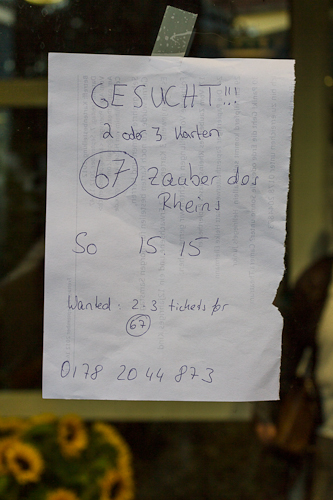 GESUCHT!!!
2 oder 3 Karten
67 Zauber des
Rheins
So 15 15
Wanted: 2-3 tickets for
67
0178 20 44 873